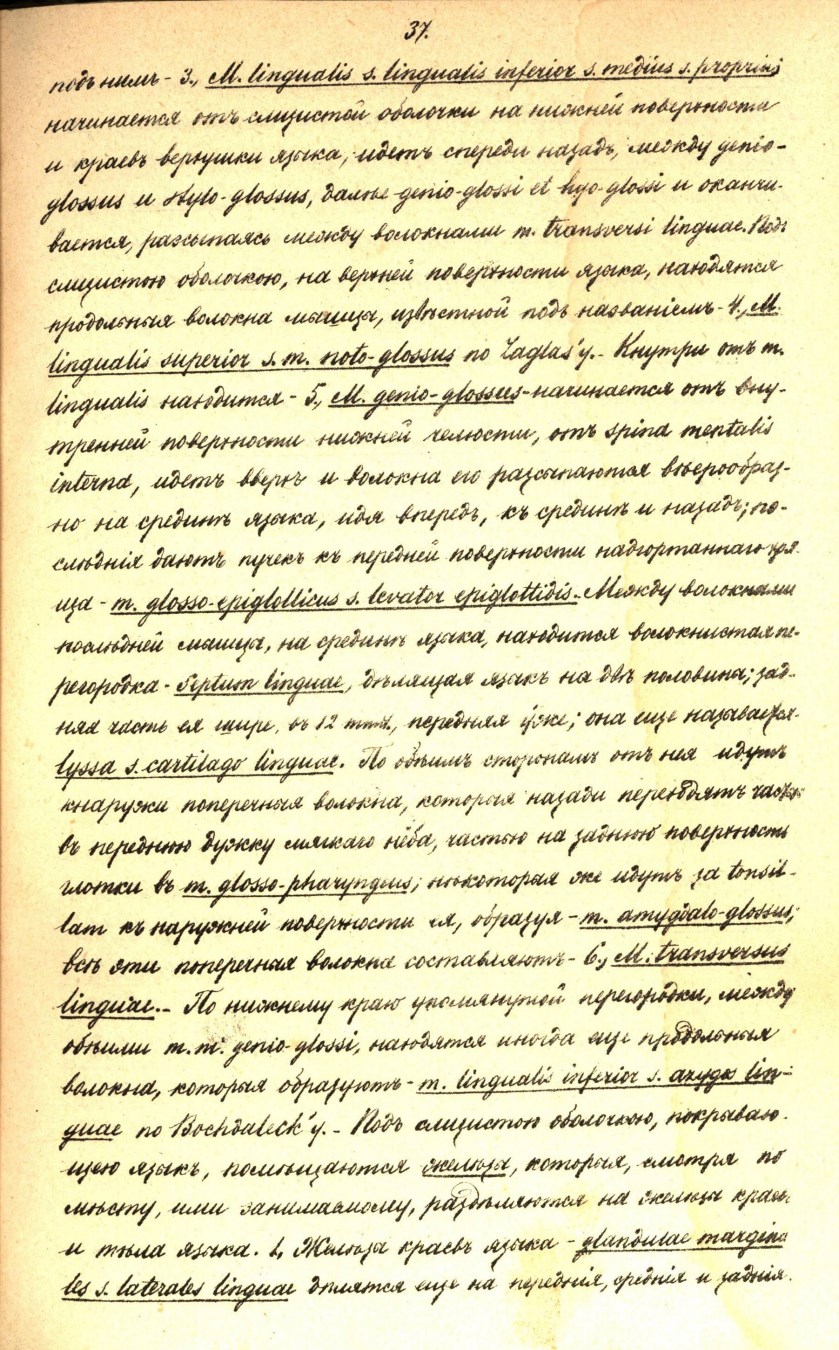 37.
подъ нимъ - 3., M. lingualis s. lingualis inferior s. medius s. proprius
начинается отъ слизистой оболочки на нижней поверхности
и краевъ верхушки языка, идетъ спереди назадъ, между genio-
glossus и stylo-glossus, далѣе genio-glossi et hyo-glossi и оканчи-
вается, разсыпаясь между волокнами m. transversi linguae. Подъ
слизистою оболочкою, на верхней поверхности языка, находятся
продольныя волокна мышцы, извѣстной подъ названіемъ - 4., M.
lingualis superior s. m. noto-glossus по Zaglas'у. - Кнутри отъ m.
lingualis находится - 5., M. genio-glossus - начинается отъ вну-
тренней поверхности нижней челюсти, отъ spina mentalis
interna, идетъ вверхъ и волокна его разсыпаются вѣерообраз-
но на срединѣ языка, идя впередъ, къ срединѣ и назадъ; по-
слѣднія даютъ пучекъ къ передней поверхности надгортаннаго хря-
ща - m. glosso-epiglotticus s. levator epiglottidis. - Между волокнами
послѣдней мышцы, на срединѣ языка, находится волокнистая пе-
регородка - Septum linguae, дѣлящая языкъ на двѣ половины; зад-
няя часть ея шире, въ 12 mmt., передняя уже; она еще называется -
lyssa s. cartilago linguae. По обѣимъ сторонамъ отъ нея идутъ
кнаружи поперечныя волокна, которыя назади переходятъ частью
въ переднюю дужку мягкаго нёба, частью на заднюю поверхность
глотки въ m. glosso-pharyngeus; нѣкоторыя же идутъ за tonsil-
lam къ наружней поверхности ея, образуя - m. amygdalo-glossus;
всѣ эти поперечныя волокна составляютъ - 6., M. transversus
linguae. - По нижнему краю упомянутой перегородки, между
обѣими m.m. genio-glossi, находятся иногда еще продольныя
волокна, которыя образуютъ - m. lingualis inferior s. azygos lin-
guae по Bochdaleck'у. - Подъ слизистою оболочкою, покрываю-
щею языкъ, помѣщаются железы, которыя, смотря по
мѣсту, ими занимаемому, раздѣляются на железы краевъ
и тѣла языка. 1, Железы краевъ языка - glandulae margina
les s. laterales linguae дѣлятся еще на переднія, среднія и заднія.